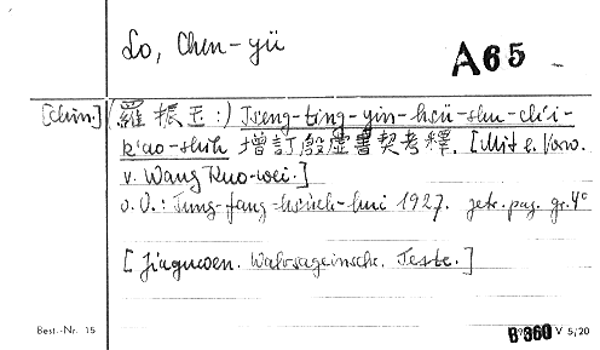 Lo, Chen-yü
A65
[chin.] (羅振玉:) Tseng-ting-yin-hsü-shu-ch'i-
k'ao-shih 增訂殷虛書契考釋. [Mit e. Vorw.
v. Wang Kuo-wei.]
o. O.: Tung-fang-hsüeh-hui 1927. getr. pag. gr. 4°
[Jiaguwen. Wahrsageinschr. Texte.]
Best.-Nr. 15
B 360 V 5/20